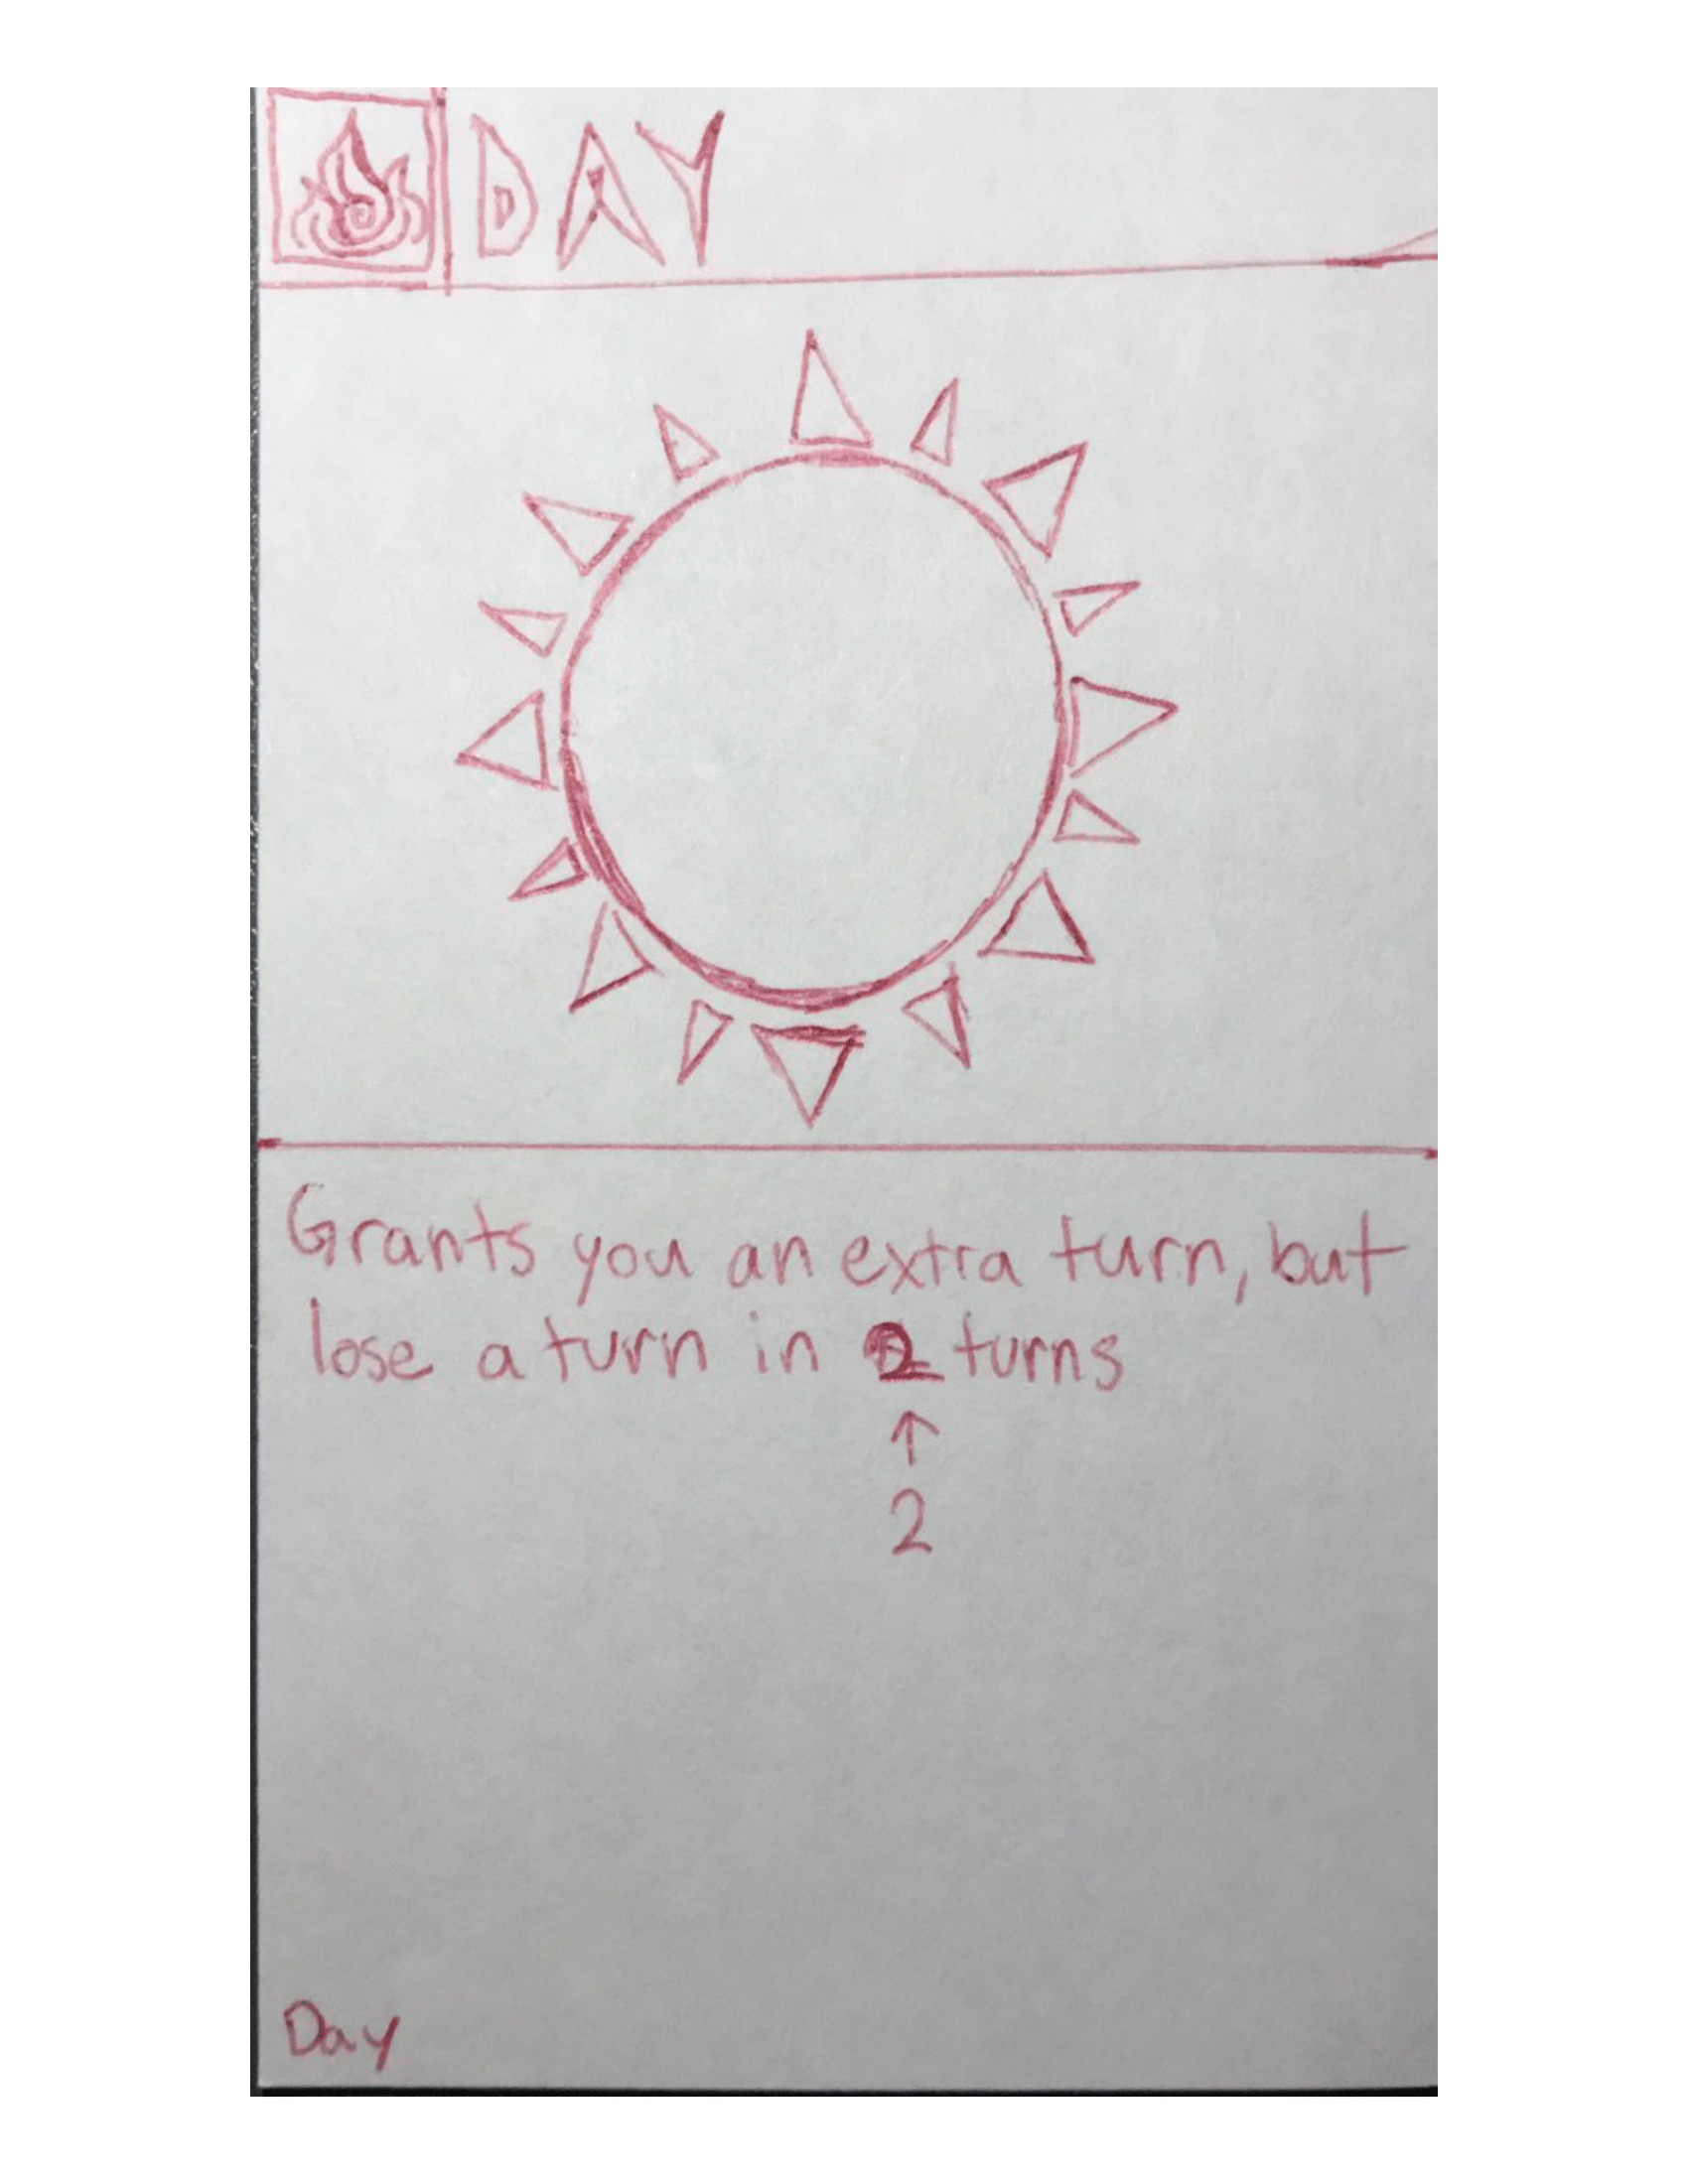 DAY
Grants you an extra turn, but
lose a turn in 2 turns
↑
2
Day